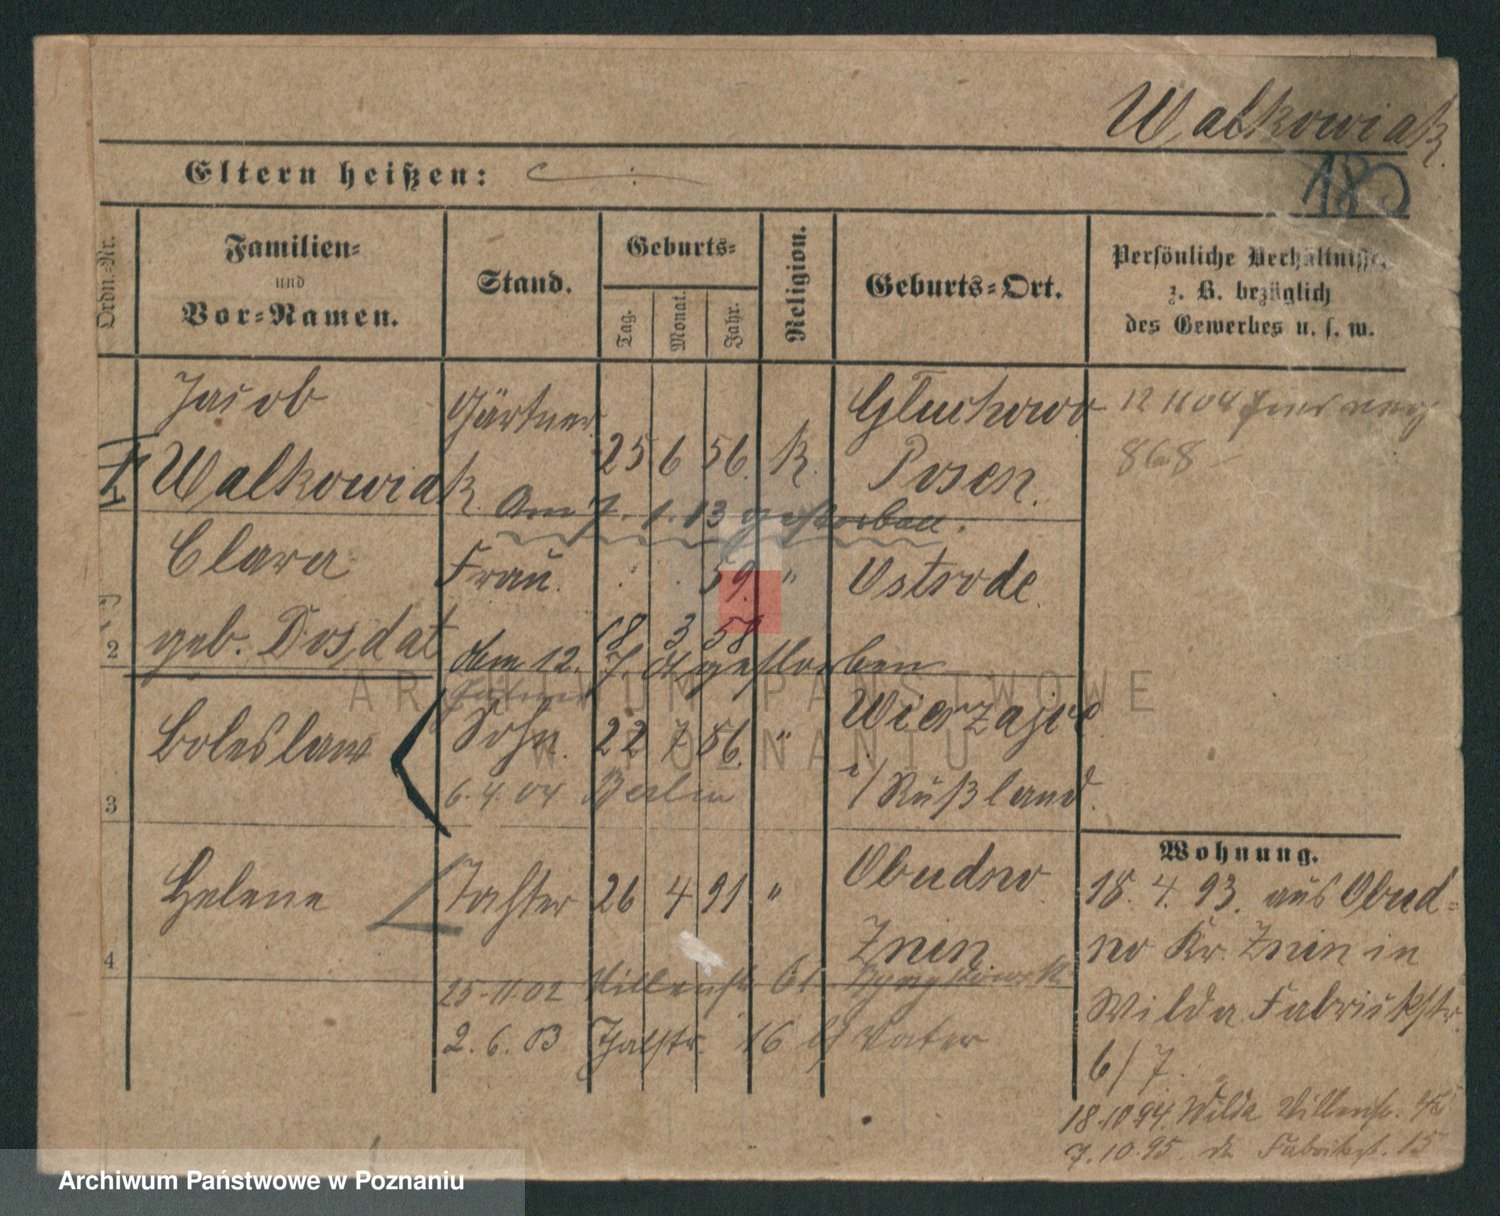 Walkowiak.
180
Eltern heißen:
Ordn.=Nr.
Familien=
und
Vor=Namen.
Stand.
Geburts=
Tag.
Monat.
Jahr.
Religion.
Geburts=Ort.
Persönliche Verhältnisse
z. B. bezüglich
des Gewerbes u. s. w.
Jacob
Walkowiak
Gärtner
25 6 56. K.
Gluchowo
Posen.
12 11 04
868
Am 7. 1. 13 gestorben.
2
Clara
geb. Dosdat
Frau.
59. "
18 3 58
Ostrode.
Am 12. 7. 01 gestorben
3
Boleslaw
Sohn.
22 7 86. "
6. 4. 04 Berlin
i/Rußland.
4
Helene
Tochter
26 4 91 "
Obudno
Znin
25-11.02 Villenstr 61
2. 6. 03 Thalstr. 16 b/ Vater
Wohnung.
18. 4. 93. aus Obud=
no Kr. Znin in
Wilda Fabrikstr.
6/7.
18.10.94. Wilda Villenstr.
7.10.95. do Fabrikst. 15
ARCHIWUM PAŃSTWOWE
W POZNANIU
Archiwum Państwowe w Poznaniu